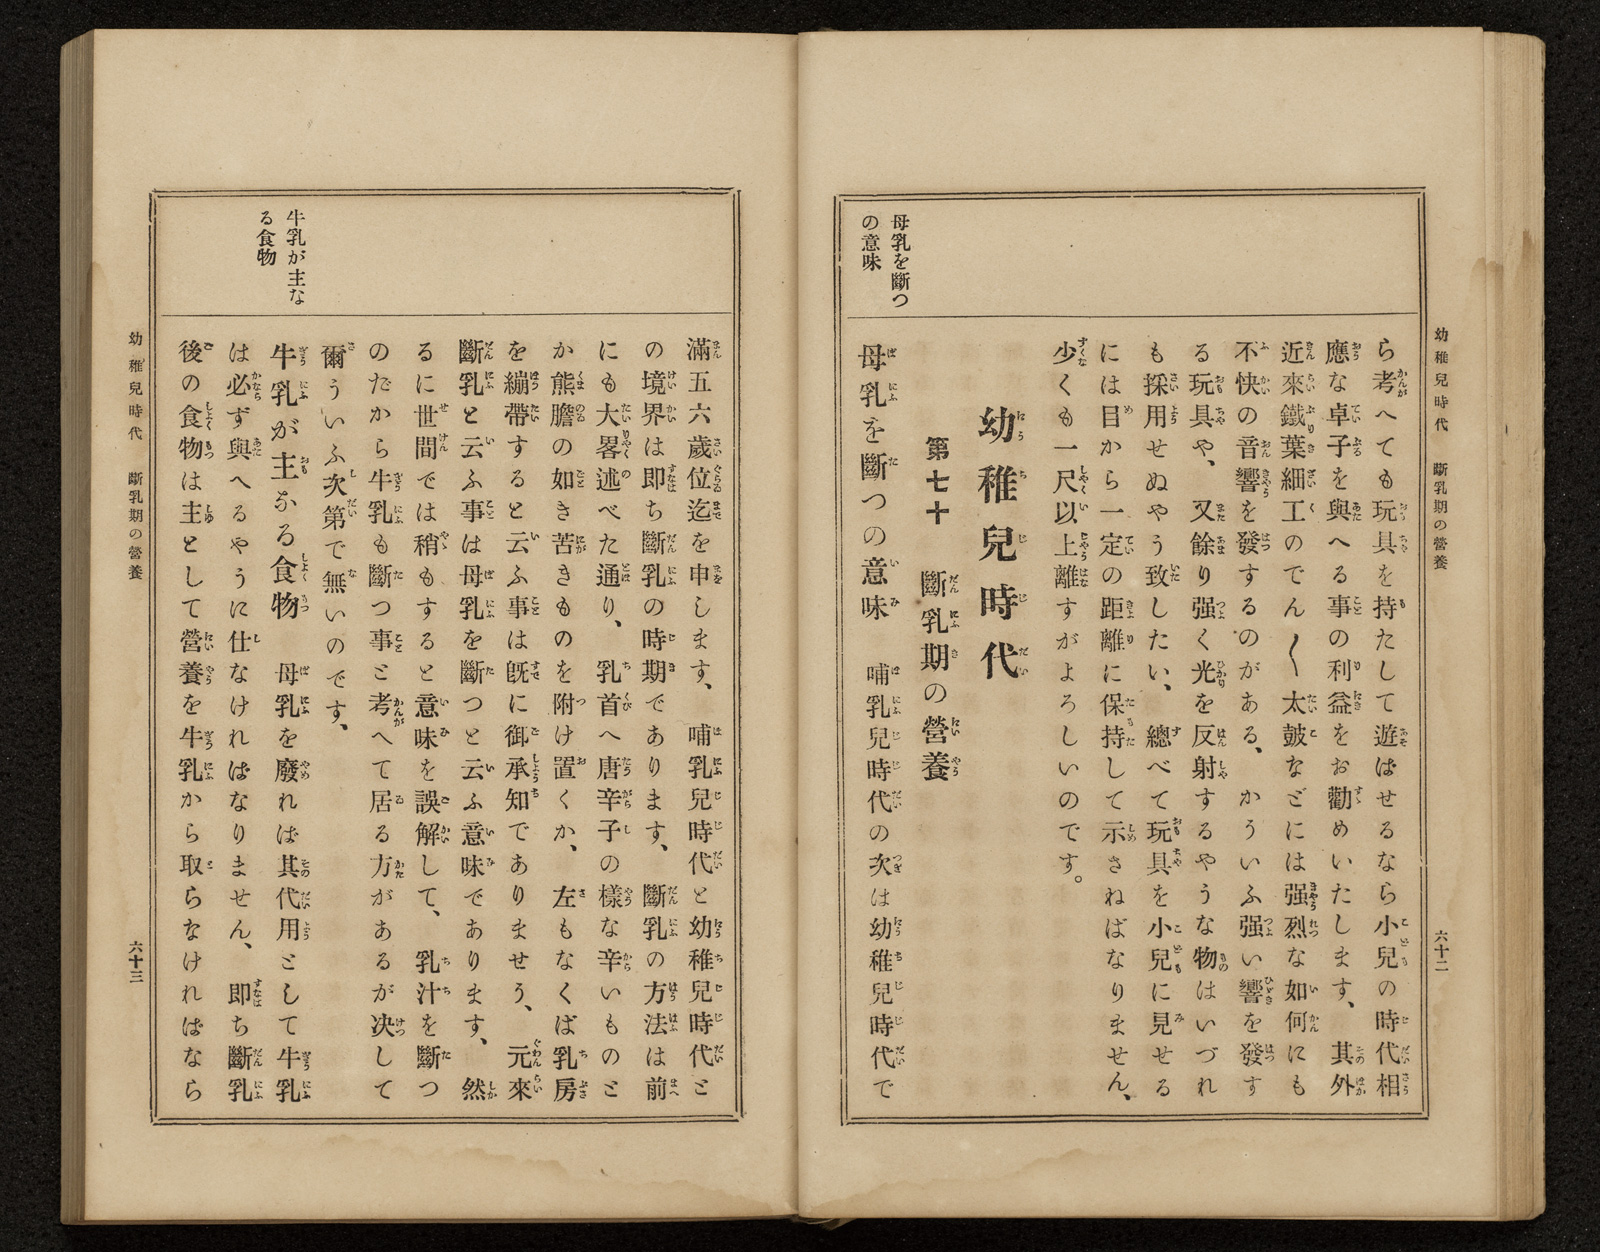 幼稚兒時代　斷乳期の營養
六十二
母乳を斷つ
の意味
ら考へても玩具を持たして遊ばせるなら小兒の時代相
應な卓子を與へる事の利益をお勸めいたします、其外
近來鐵葉細工のでん〱太皷などには强烈な如何にも
不快の音響を發するのがある、かういふ强い響を發す
る玩具や、又餘り强く光を反射するやうな物はいづれ
も採用せぬやう致したい、總べて玩具を小兒に見せる
には目から一定の距離に保持して示さねばなりません、
少くも一尺以上離すがよろしいのです。
幼稚兒時代
第七十　斷乳期の營養
母乳を斷つの意味　哺乳兒時代の次は幼稚兒時代で
牛乳が主な
る食物
滿五六歲位迄を申します、哺乳兒時代と幼稚兒時代と
の境界は即ち斷乳の時期であります、斷乳の方法は前
にも大畧述べた通り、乳首へ唐辛子の樣な辛いものと
か熊膽の如き苦きものを附け置くか、左もなくば乳房
を繃帶すると云ふ事は旣に御承知でありませう、元來
斷乳と云ふ事は母乳を斷つと云ふ意味であります、然
るに世間では稍もすると意味を誤解して、乳汁を斷つ
のだから牛乳も斷つ事と考へて居る方があるが决して
爾ういふ次第で無いのです、
牛乳が主なる食物　母乳を廢れば其代用として牛乳
は必ず與へるやうに仕なければなりません、即ち斷乳
後の食物は主として營養を牛乳から取らなければなら
幼稚兒時代　斷乳期の營養
六十三